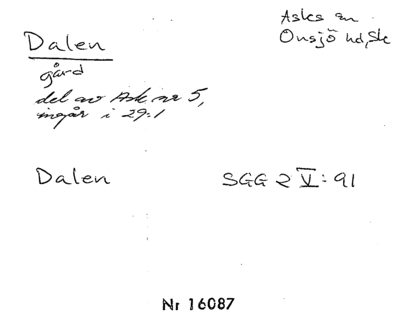 Dalen
Asks sn
Onsjö hd, Sk
gård
del av Ask nr 5,
ingår i 29:1
Dalen
SGG 2 V: 91
Nr 16087